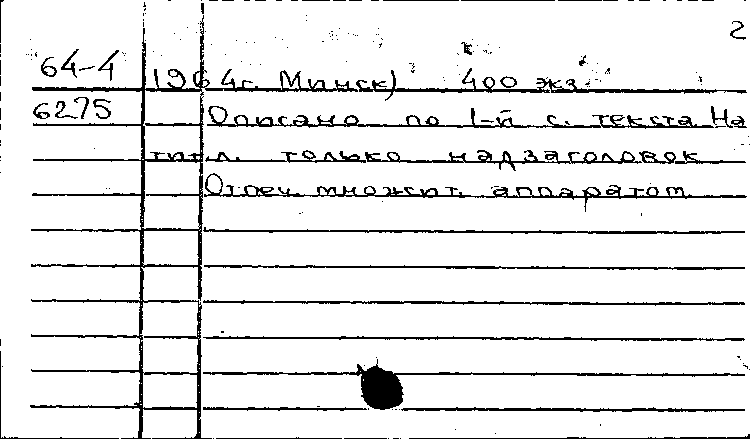 2
64-4 1964г. Минск) 400 экз.
6275 Описано по 1-й с. текста На
тит.л. только надзаголовок
Отпеч. множит. аппаратом